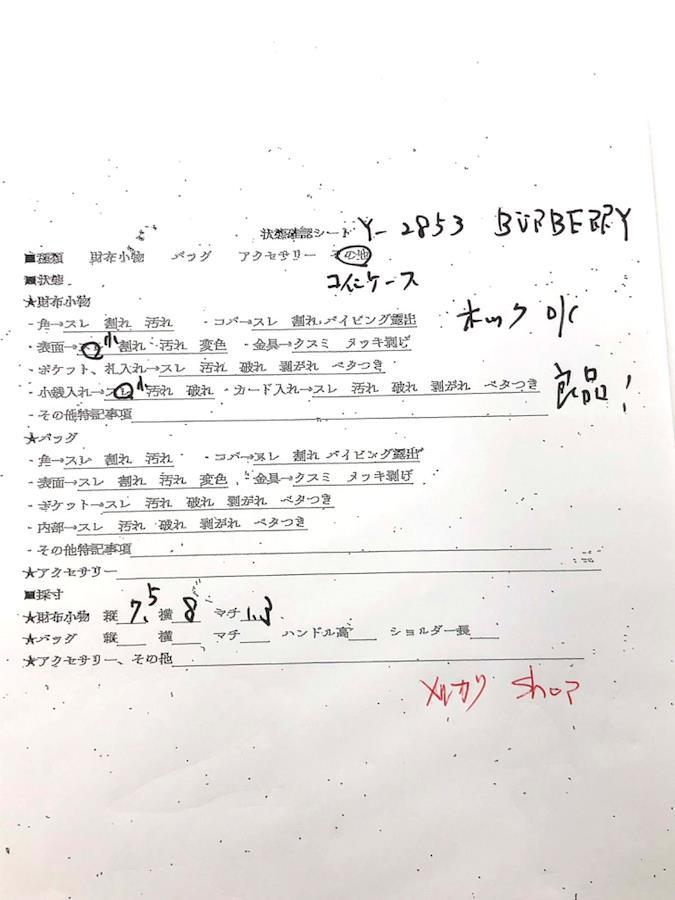 状態確認シート Y-2853 BURBERRY
■種類 財布小物 バッグ アクセサリー その他
■状態 コインケース
★財布小物
・角→スレ 割れ 汚れ ・コバ→スレ 割れ パイピング露出 ホック O/C
・表面→スレ 小 割れ 汚れ 変色 ・金具→クスミ メッキ剥げ
・ポケット、札入れ→スレ 汚れ 破れ 剥がれ ベタつき
・小銭入れ→スレ 小 汚れ 破れ ・カード入れ→スレ 汚れ 破れ 剥がれ ベタつき 良品!
・その他特記事項
★バッグ
・角→スレ 割れ 汚れ ・コバ→スレ 割れ パイピング露出
・表面→スレ 割れ 汚れ 変色 ・金具→クスミ メッキ剥げ
・ポケット→スレ 汚れ 破れ 剥がれ ベタつき
・内部→スレ 汚れ 破れ 剥がれ ベタつき
・その他特記事項
★アクセサリー
■採寸
★財布小物 縦 7.5 横 8 マチ 1.3
★バッグ 縦 横 マチ ハンドル高 ショルダー長
★アクセサリー、その他
メルカリ shop